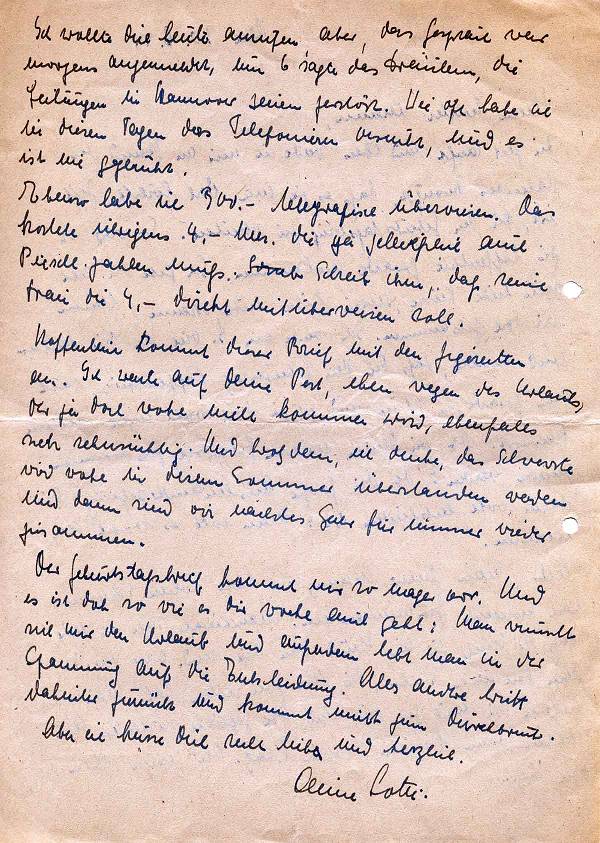 Ich wollte dich heute anrufen, aber, das Gespräch war
morgens angemeldet, um 6 sagte das Fräulein, die
Leitungen in Hannover seien gestört. Wie oft habe ich
in diesen Tagen das Telefonieren versucht, und es
ist nie geglückt.
Ebenso habe ich 300.- telegrafisch überwiesen. Das
kostete übrigens 4,- Mk. die ja
zahlen muss. Schreib ihm, dass seine
Frau die 4,- direkt mitüberweisen soll.
Hoffentlich kommt dieser Brief mit den Zigaretten
an. Ich warte auf deine Post, eben wegen des Urlaubs,
der ja doch wohl nicht kommen wird, ebenfalls
sehr sehnsüchtig. Und trotzdem, ich denke, das Schwerste
wird wohl in diesem Sommer überstanden werden
und dann sind wir nächstes Jahr für immer wieder
zusammen.
Der Geburtstagsbrief kommt mir so mager vor. Und
es ist doch so wie es dir wohl auch geht: Man wünscht
sich nur den Urlaub und außerdem lebt man in der
Spannung auf die Entscheidung. Alles andere tritt
dahinter zurück und kommt nicht zum Durchbruch.
Aber ich küsse dich sehr lieb und herzlich.
Deine Lotti.